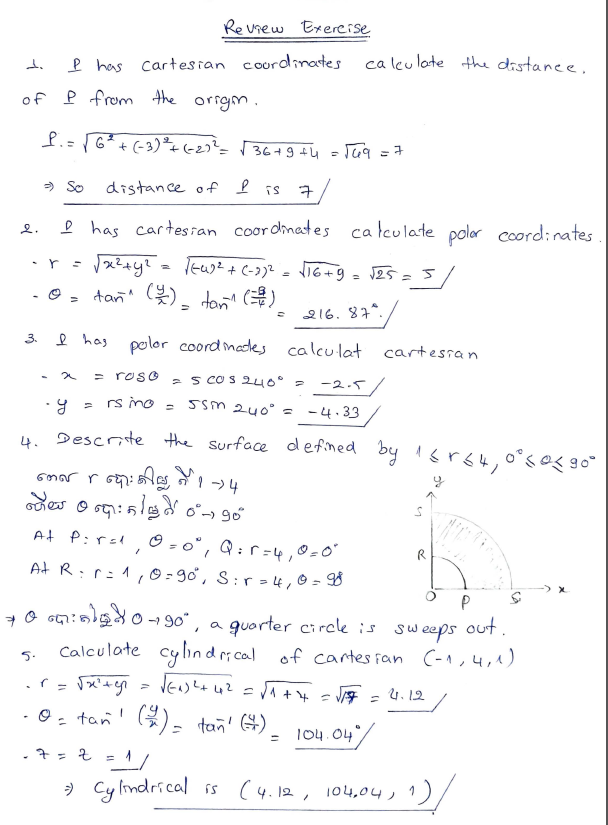 Review Exercise
1. P has cartesian coordinates calculate the distance.
of P from the origin.
P. = √6² + (-3)² + (-2)² = √36 + 9 + 4 = √49 = 7
⇒ So distance of P is 7
2. P has cartesian coordinates calculate polar coordinates.
- r = √x²+y² = √(-4)² + (-3)² = √16+9 = √25 = 5
- θ = tan⁻¹ (y/x) = tan⁻¹ (-3/-4) = 216.87°.
3. P has polar coordinades calculat cartesian
- x = rcosθ = 5 cos 240° = -2.5
- y = rsinθ = 5sin 240° = -4.33
4. Descrite the surface defined by 1 ≤ r ≤ 4, 0° ≤ θ ≤ 90°
ពេល r ប្រែ: ពី 1 → 4
ហើយ θ ប្រែ: ពី 0° → 90°
At P: r=1, θ=0°, Q: r=4, θ=0°
At R: r=1, θ=90°, S: r=4, θ=90
y
S
R
O P Q x
⇒ θ ប្រែ: ពី 0 → 90°, a quarter circle is sweeps out.
5. Calculate cylindrical of cartesian (-1, 4, 1)
- r = √x²+y² = √(-1)² + 4² = √1 + 4 = √17 = 4.12
- θ = tan⁻¹ (y/x) = tan⁻¹ (4/-1) = 104.04°
- z = z = 1
⇒ Cylindrical is (4.12, 104.04, 1)